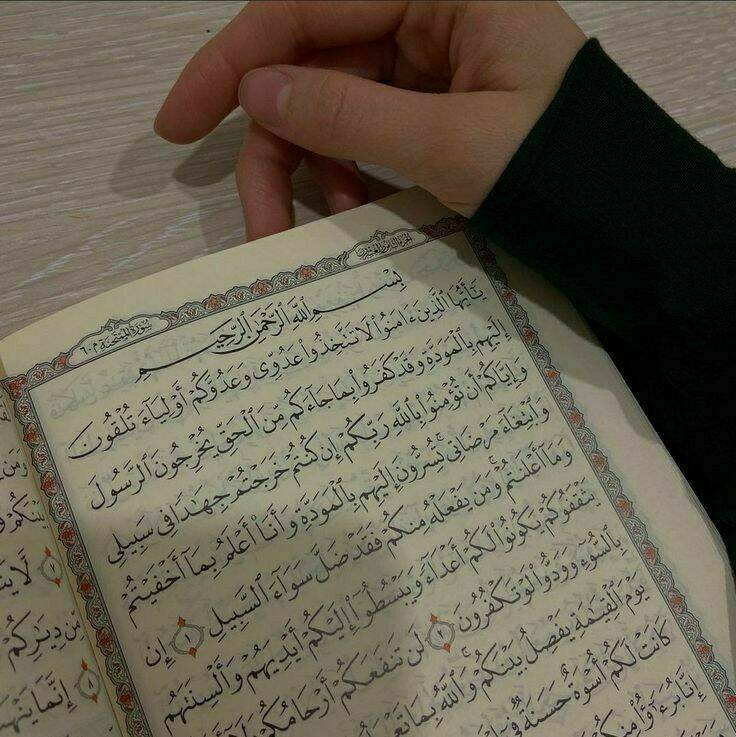 الجزء الثامن والعشرون
سورة الممتحنة ٦٠
بِسْمِ ٱللَّهِ ٱلرَّحْمَٰنِ ٱلرَّحِيمِ
يَٰٓأَيُّهَا ٱلَّذِينَ ءَامَنُوا۟ لَا تَتَّخِذُوا۟ عَدُوِّى وَعَدُوَّكُمْ أَوْلِيَآءَ تُلْقُونَ
إِلَيْهِم بِٱلْمَوَدَّةِ وَقَدْ كَفَرُوا۟ بِمَا جَآءَكُم مِّنَ ٱلْحَقِّ يُخْرِجُونَ ٱلرَّسُولَ
وَإِيَّاكُمْ أَن تُؤْمِنُوا۟ بِٱللَّهِ رَبِّكُمْ إِن كُنتُمْ خَرَجْتُمْ جِهَٰدًا فِى سَبِيلِى
وَٱبْتِغَآءَ مَرْضَاتِى ۚ تُسِرُّونَ إِلَيْهِم بِٱلْمَوَدَّةِ وَأَنَا۠ أَعْلَمُ بِمَآ أَخْفَيْتُمْ
وَمَآ أَعْلَنتُمْ ۚ وَمَن يَفْعَلْهُ مِنكُمْ فَقَدْ ضَلَّ سَوَآءَ ٱلسَّبِيلِ ١ إِن
يَثْقَفُوكُمْ يَكُونُوا۟ لَكُمْ أَعْدَآءً وَيَبْسُطُوٓا۟ إِلَيْكُمْ أَيْدِيَهُمْ وَأَلْسِنَتَهُم
بِٱلسُّوٓءِ وَوَدُّوا۟ لَوْ تَكْفُرُونَ ٢ لَن تَنفَعَكُمْ أَرْحَامُكُمْ وَلَآ
يَوْمَ ٱلْقِيَٰمَةِ يَفْصِلُ بَيْنَكُمْ ۚ وَٱللَّهُ بِمَا
كَانَتْ لَكُمْ أُسْوَةٌ حَسَنَةٌ فِىٓ
إِنَّا بُرَءَٰٓؤُا۟ مِنكُمْ
مِّن دِيَٰرِكُمْ
إِنَّمَا